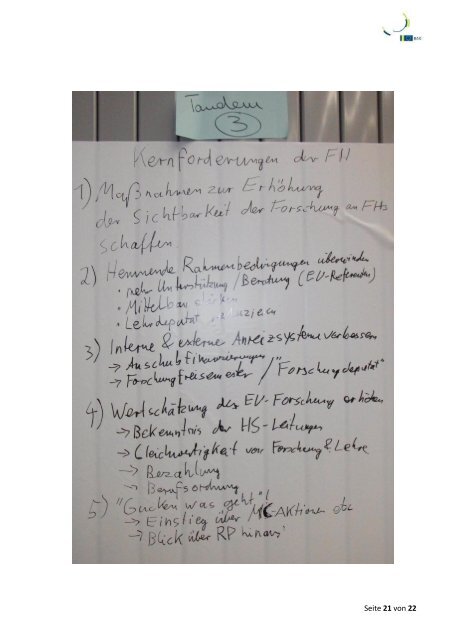 BAK
Tandem
3
Kernforderungen der FH
1) Maßnahmen zur Erhöhung
der Sichtbarkeit der Forschung an FHs
schaffen
2) Hemmende Rahmenbedingungen überwinden
• mehr Unterstützung / Beratung (EU-Referenten)
• Mittelbau stärken
• Lehrdeputat reduzieren
3) Interne & externe Anreizsysteme verbessern
→ Anschubfinanzierungen
→ Forschungsfreisemester / "Forschungsdeputat"
4) Wertschätzung der EU-Forschung erhöhen
→ Bekenntnis der HS-Leitungen
→ Gleichwertigkeit von Forschung & Lehre
→ Bezahlung
→ Berufsordnung
5) "Gucken was geht"!
→ Einstieg über MC-Aktionen etc
→ Blick über RP hinaus
Seite 21 von 22